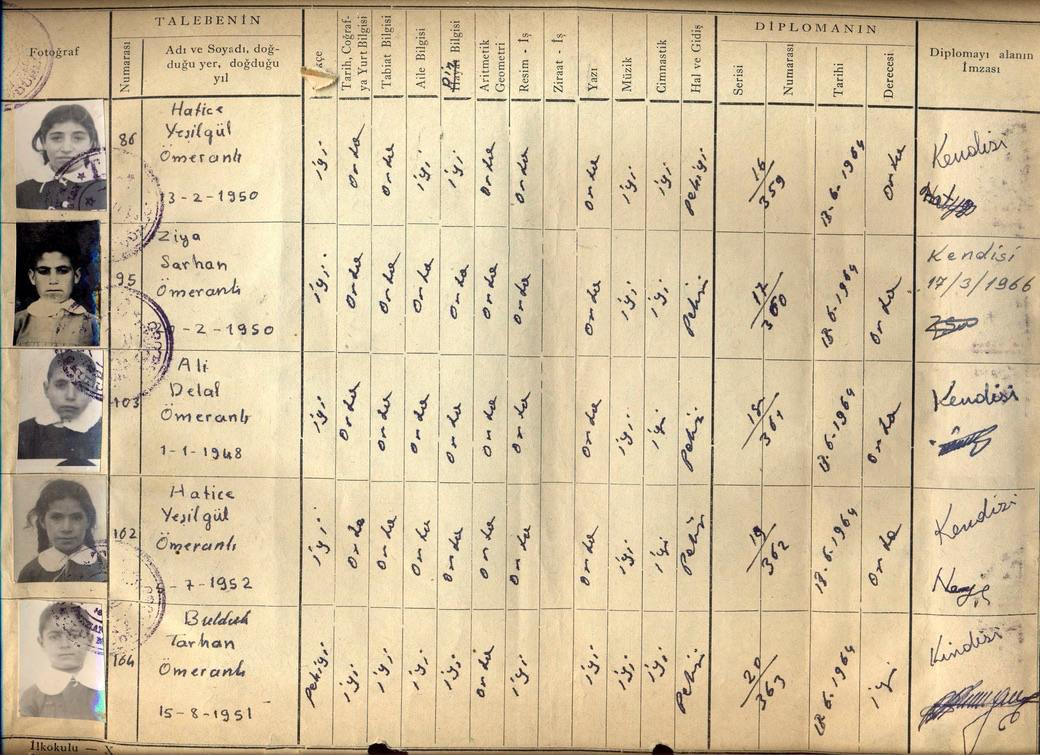 TALEBENİN
DİPLOMANIN
Fotoğraf
Numarası
Adı ve Soyadı, doğ-
duğu yer, doğduğu
yıl
Tarih, Coğraf-
ya Yurt Bilgisi
Tabiat Bilgisi
Aile Bilgisi
Din Bilgisi
Aritmetik
Geometri
Resim - İş
Ziraat - İş
Yazı
Müzik
Cimnastik
Hal ve Gidiş
Serisi
Numarası
Tarihi
Derecesi
Diplomayı alanın
İmzası
86
Hatice
Yeşilgül
Ömeranlı
3-2-1950
iyi
Orta
Orta
iyi
iyi
Orta
Orta
Orta
iyi
iyi
Pekiyi
16/359
18-6-1964
Orta
Kendisi
95
Ziya
Sarhan
Ömeranlı
-2-1950
iyi
Orta
Orta
Orta
Orta
Orta
Orta
Orta
iyi
iyi
Pekiyi
17/360
18-6-1964
Orta
Kendisi
17/3/1966
103
Ali
Delal
Ömeranlı
1-1-1948
iyi
Orta
Orta
Orta
Orta
Orta
Orta
Orta
iyi
iyi
Pekiyi
361
18-6-1964
Orta
Kendisi
162
Hatice
Yeşilgül
Ömeranlı
-7-1952
iyi
Orta
Orta
Orta
Orta
Orta
Orta
Orta
iyi
iyi
Pekiyi
19/362
18-6-1964
Orta
Kendisi
164
Tarhan
Ömeranlı
15-8-1951
Pekiyi
iyi
iyi
iyi
iyi
Orta
iyi
iyi
iyi
iyi
Pekiyi
20/363
18-6-1964
iyi
Kindisi
İlkokulu — X